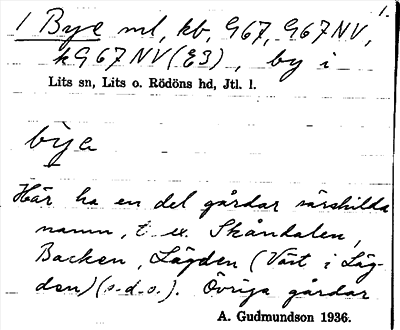 1.
1 Bye ml, kb, G67, G67NV,
kG67NV(E3), by i
Lits sn, Lits o. Rödöns hd, Jtl. l.
bỳa
Här ha en del gårdar särskilda
namn, t. ex. Skåndalen,
Backen, Lägden (Väst i Läg-
den) (s.d.o.). Övriga gårdar
A. Gudmundson 1936.